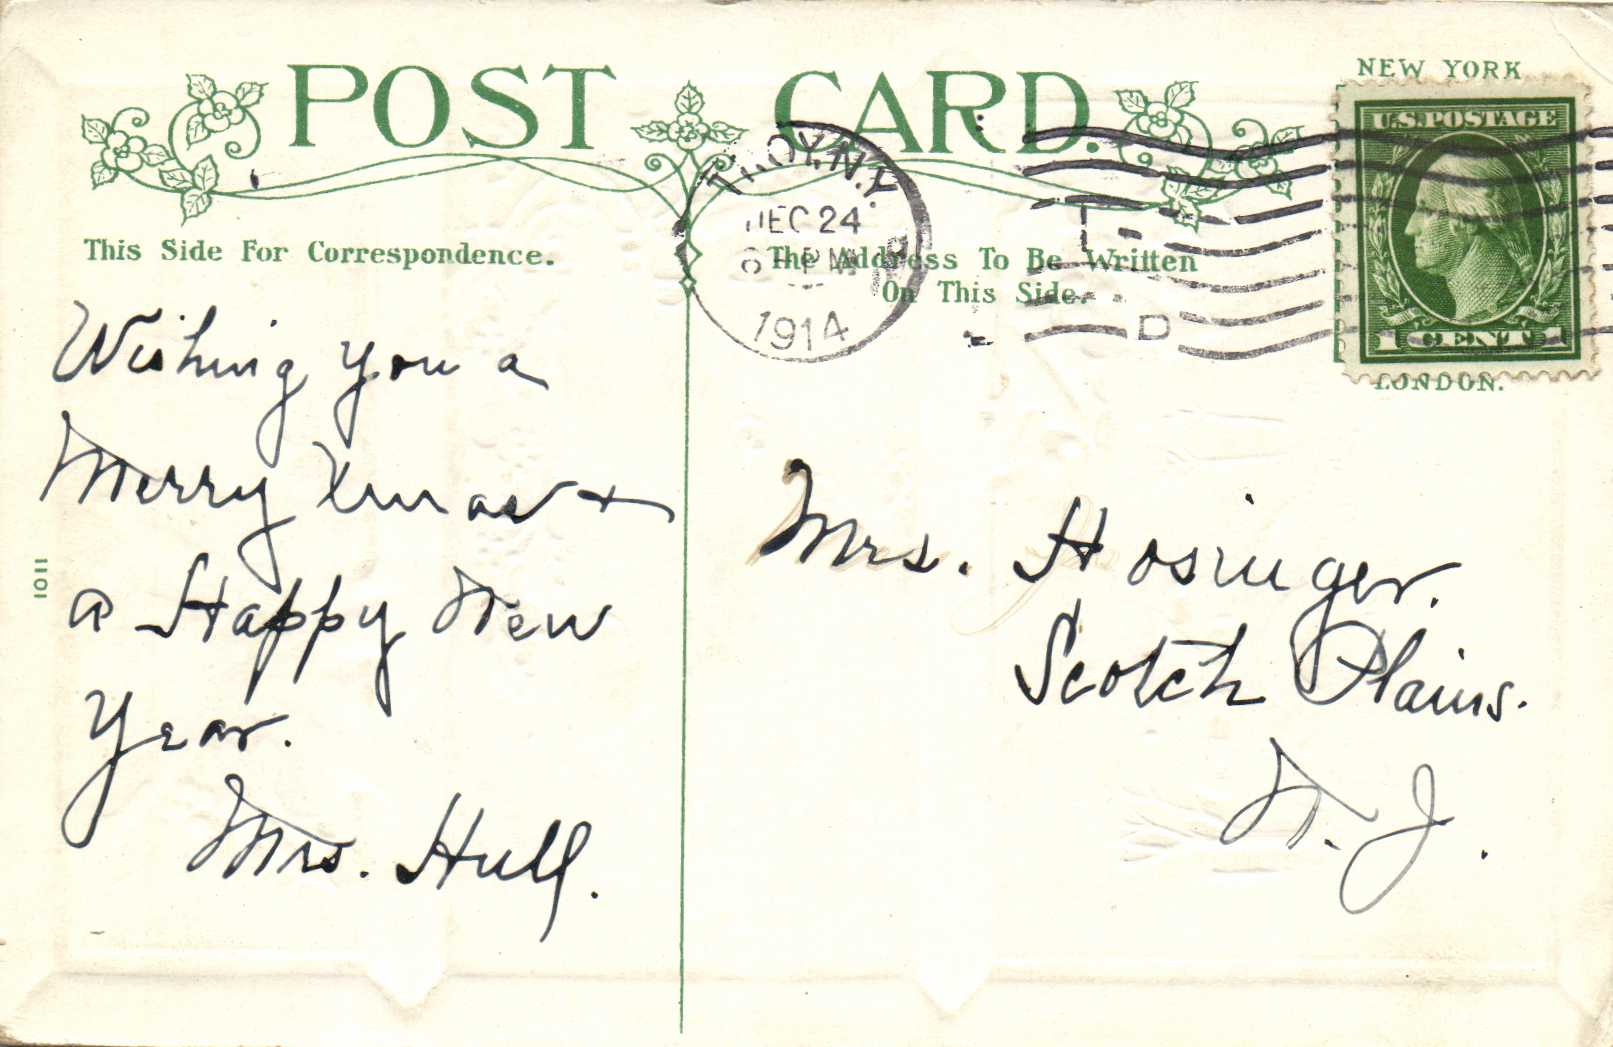 POST CARD.
NEW YORK
U.S. POSTAGE
1 CENT 1
LONDON.
TROY, N.Y.
DEC 24
PM
1914
D
This Side For Correspondence.
The Address To Be Written
On This Side.
Wishing you a
Merry Xmas +
a Happy New
Year.
Mrs. Hull.
1011
Mrs. Hosinger.
Scotch Plains.
N. J.